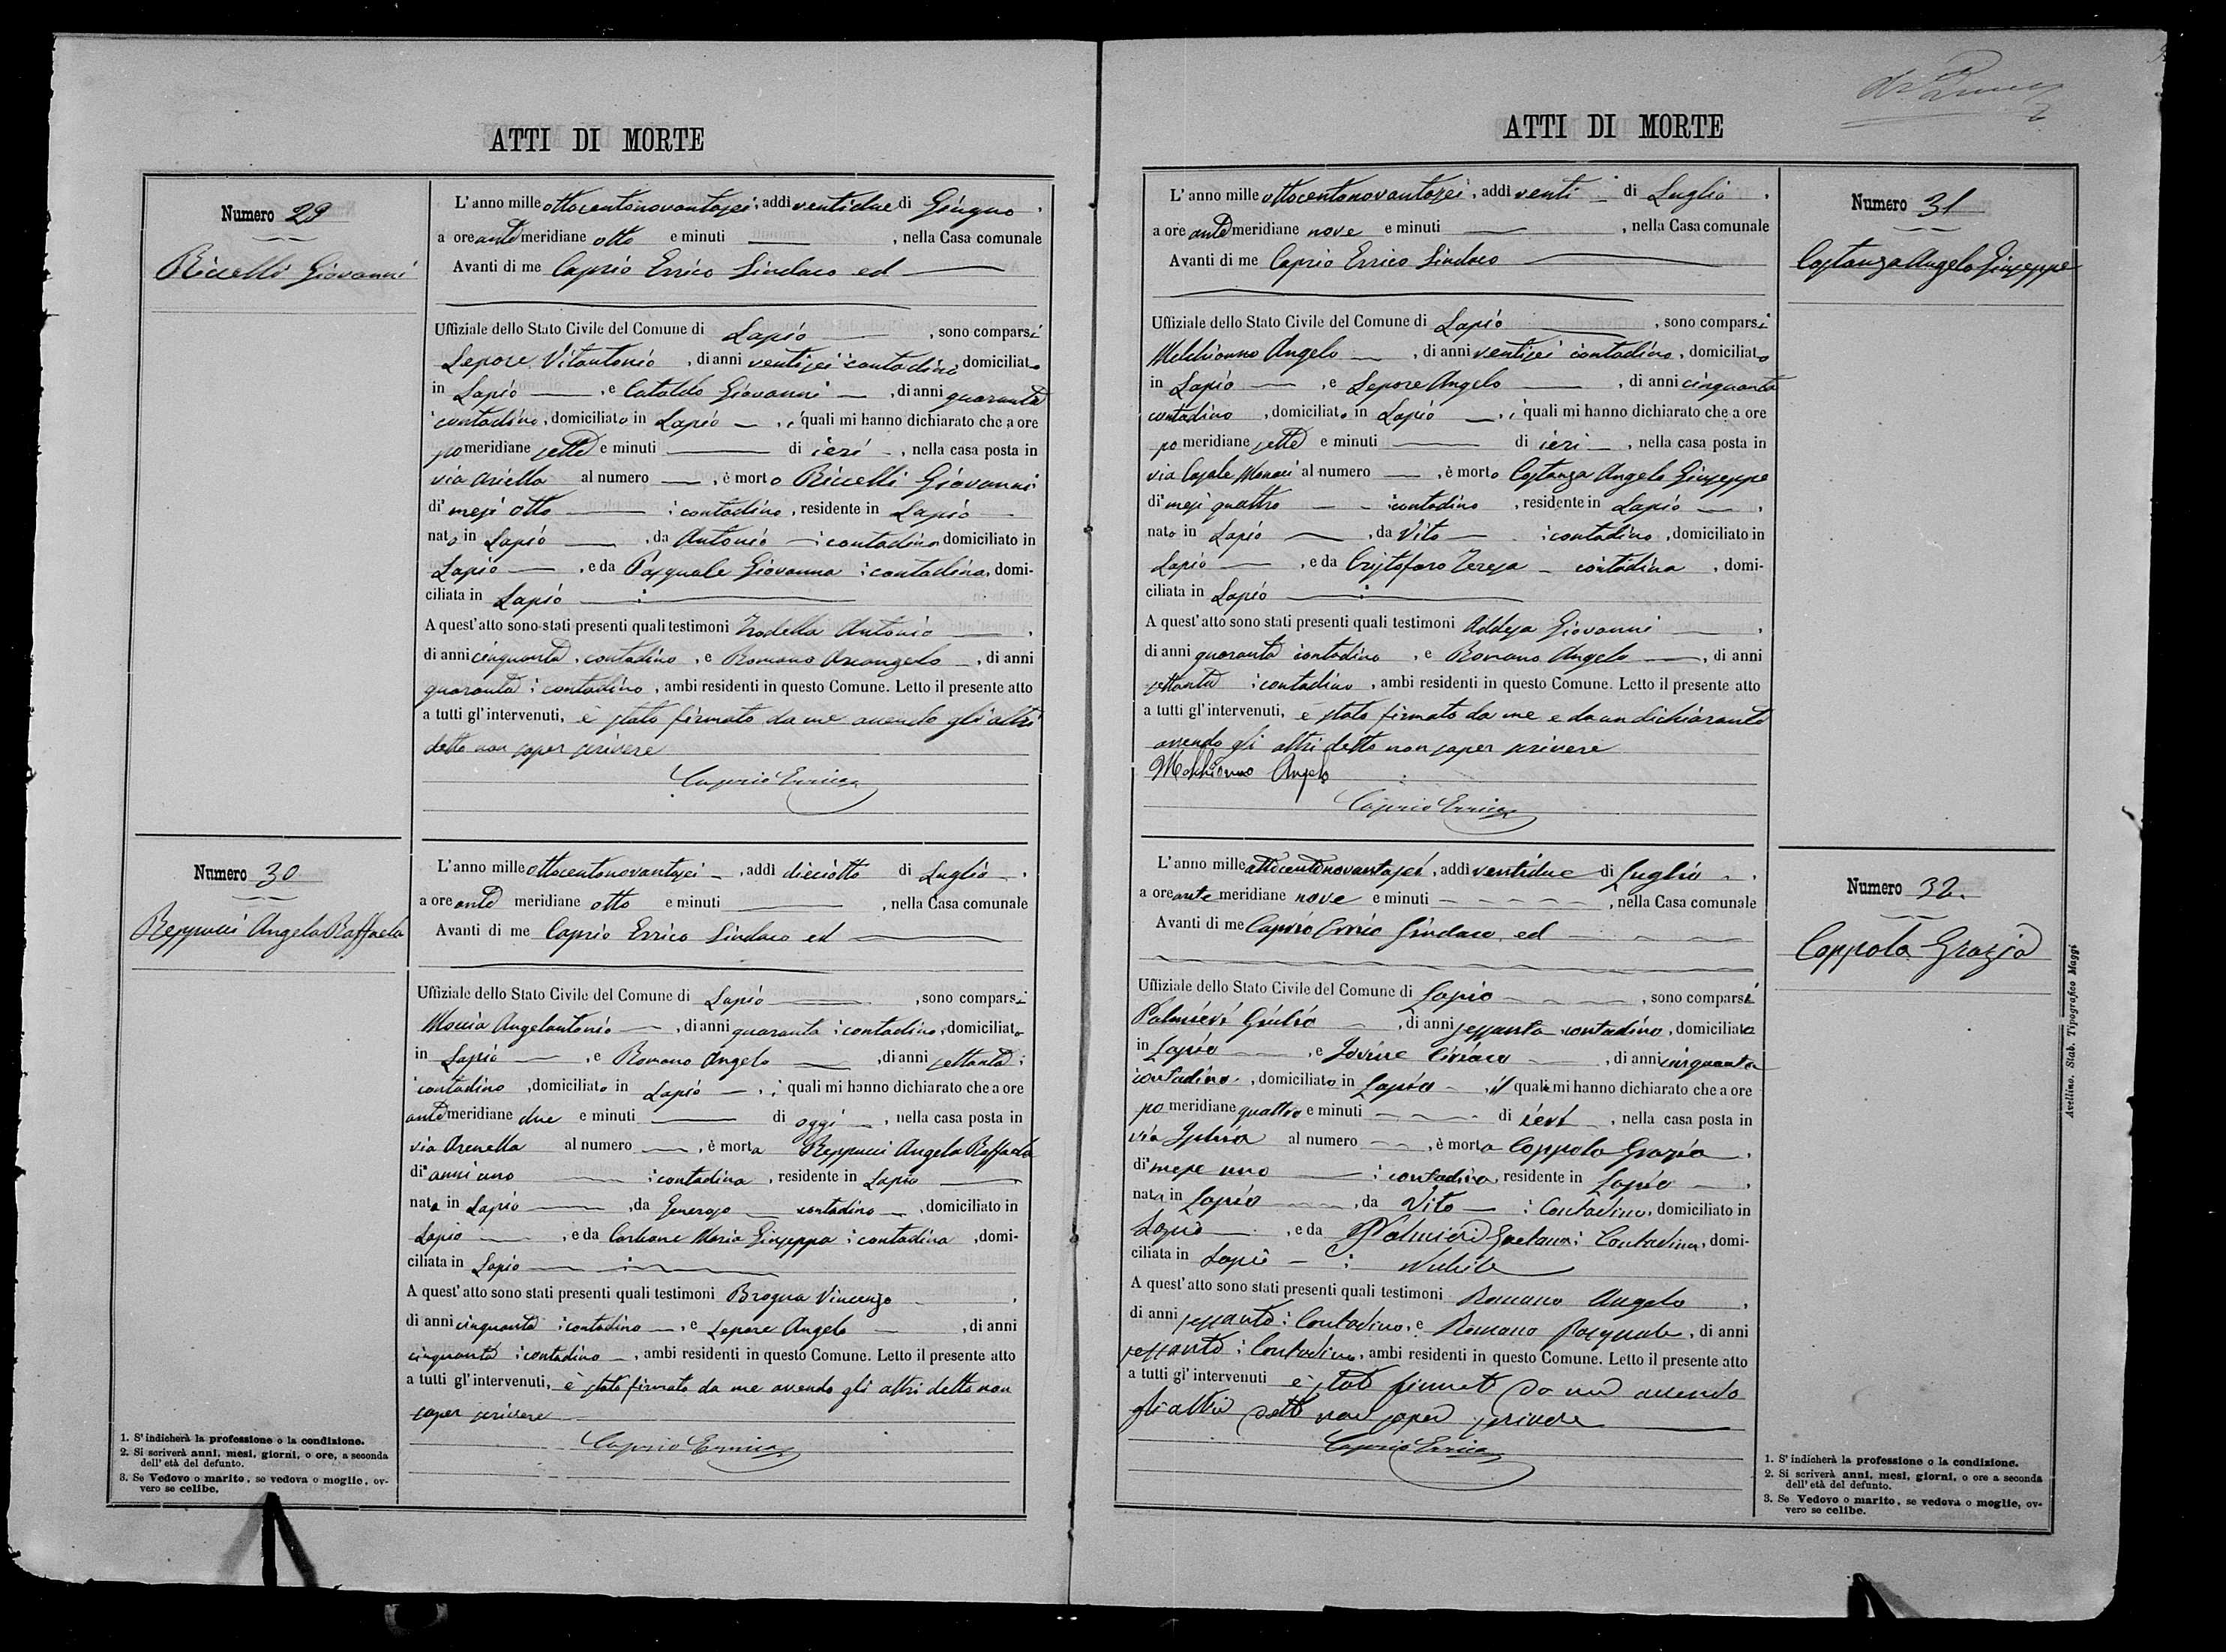 ATTI DI MORTE
Numero 29
Riccelli Giovanni
L'anno mille ottocentonovantasei, addì ventidue di Giugno,
a ore ante meridiane otto e minuti —, nella Casa comunale
Avanti di me Caprio Errico Sindaco ed —
Uffiziale dello Stato Civile del Comune di Lapio —, sono comparsi
Lepore Vitantonio, di anni ventisei contadino domiciliato
in Lapio —, e Cataldo Giovanni —, di anni quaranta
contadino, domiciliato in Lapio —, i quali mi hanno dichiarato che a ore
po meridiane sette e minuti — di ieri —, nella casa posta in
via Ariella al numero —, è morto Riccelli Giovanni
di mesi otto — : contadino, residente in Lapio —
nato in Lapio —, da Antonio — : contadino domiciliato in
Lapio —, e da Pasquale Giovanna : contadina, domi-
ciliata in Lapio — : —
A quest'atto sono stati presenti quali testimoni Antonio —,
di anni cinquanta, contadino, e Romano Arcangelo —, di anni
quaranta : contadino, ambi residenti in questo Comune. Letto il presente atto
a tutti gl'intervenuti, è stato firmato da me avendo gli altri
detto non saper scrivere
Caprio Errico
Numero 30
Reppucci Angela Raffaela
L'anno mille ottocentonovantasei —, addì dieciotto di Luglio —,
a ore ante meridiane otto e minuti —, nella Casa comunale
Avanti di me Caprio Errico Sindaco ed —
Uffiziale dello Stato Civile del Comune di Lapio —, sono comparsi
Moccia Angelantonio —, di anni quaranta : contadino, domiciliato
in Lapio —, e Romano Angelo —, di anni settanta :
contadino, domiciliato in Lapio —, i quali mi hanno dichiarato che a ore
ante meridiane due e minuti — di oggi —, nella casa posta in
via Arenella al numero —, è morta Reppucci Angela Raffaela
di anni uno — : contadina, residente in Lapio —
nata in Lapio —, da Generoso — contadino —, domiciliato in
Lapio —, e da Carbone Maria Giuseppa : contadina, domi-
ciliata in Lapio — : —
A quest'atto sono stati presenti quali testimoni Brogna Vincenzo —,
di anni cinquanta : contadino —, e Lepore Angelo —, di anni
cinquanta : contadino —, ambi residenti in questo Comune. Letto il presente atto
a tutti gl'intervenuti, è stato firmato da me avendo gli altri detto non
saper scrivere —
Caprio Errico
1. S'indicherà la professione o la condizione.
2. Si scriverà anni, mesi, giorni, o ore, a seconda
dell'età del defunto.
3. Se Vedovo o marito, se vedova o moglie, ov-
vero se celibe.
ATTI DI MORTE
Numero 31
Costanza Angelo Giuseppe
L'anno mille ottocentonovantasei, addì venti — di Luglio,
a ore ante meridiane nove e minuti —, nella Casa comunale
Avanti di me Caprio Errico Sindaco —
Uffiziale dello Stato Civile del Comune di Lapio —, sono comparsi
Melchionno Angelo —, di anni ventisei contadino, domiciliato
in Lapio —, e Lepore Angelo —, di anni cinquanta
contadino, domiciliato in Lapio —, i quali mi hanno dichiarato che a ore
po meridiane sette e minuti — di ieri —, nella casa posta in
via Casale Monaci al numero —, è morto Costanza Angelo Giuseppe
di mesi quattro — : contadino, residente in Lapio —,
nato in Lapio —, da Vito — : contadino, domiciliato in
Lapio —, e da Cristofaro Teresa — contadina, domi-
ciliata in Lapio — : —
A quest'atto sono stati presenti quali testimoni Addesa Giovanni —,
di anni quaranta contadino, e Romano Angelo —, di anni
settanta : contadino, ambi residenti in questo Comune. Letto il presente atto
a tutti gl'intervenuti, è stato firmato da me e da un dichiarante
avendo gli altri detto non saper scrivere
Melchionno Angelo
Caprio Errico
Numero 32.
Coppola Grazia
L'anno mille ottocentonovantasei, addì ventidue di Luglio —,
a ore ante meridiane nove e minuti —, nella Casa comunale
Avanti di me Caprio Errico Sindaco ed —
Uffiziale dello Stato Civile del Comune di Lapio —, sono comparsi
Palmieri Giulio —, di anni sessanta contadino, domiciliato
in Lapio —, e Iovine Ciriaco —, di anni cinquanta
contadino, domiciliato in Lapio —, i quali mi hanno dichiarato che a ore
po meridiane quattro e minuti — di ieri —, nella casa posta in
via al numero —, è morta Coppola Grazia,
di mese uno — : contadina, residente in Lapio —,
nata in Lapio —, da Vito — : Contadino, domiciliato in
Lapio —, e da Palmieri Gaetana : Contadina, domi-
ciliata in Lapio — : Nubile
A quest'atto sono stati presenti quali testimoni Romano Angelo,
di anni sessanta : Contadino, e Romano Pasquale, di anni
sessanta : Contadino, ambi residenti in questo Comune. Letto il presente atto
a tutti gl'intervenuti è stato firmato da me avendo
gli altri detto non saper scrivere
Caprio Errico
1. S'indicherà la professione o la condizione.
2. Si scriverà anni, mesi, giorni, o ore a seconda
dell'età del defunto.
3. Se Vedovo o marito, se vedova o moglie, ov-
vero se celibe.
Avellino. Stab. Tipografico Maggi